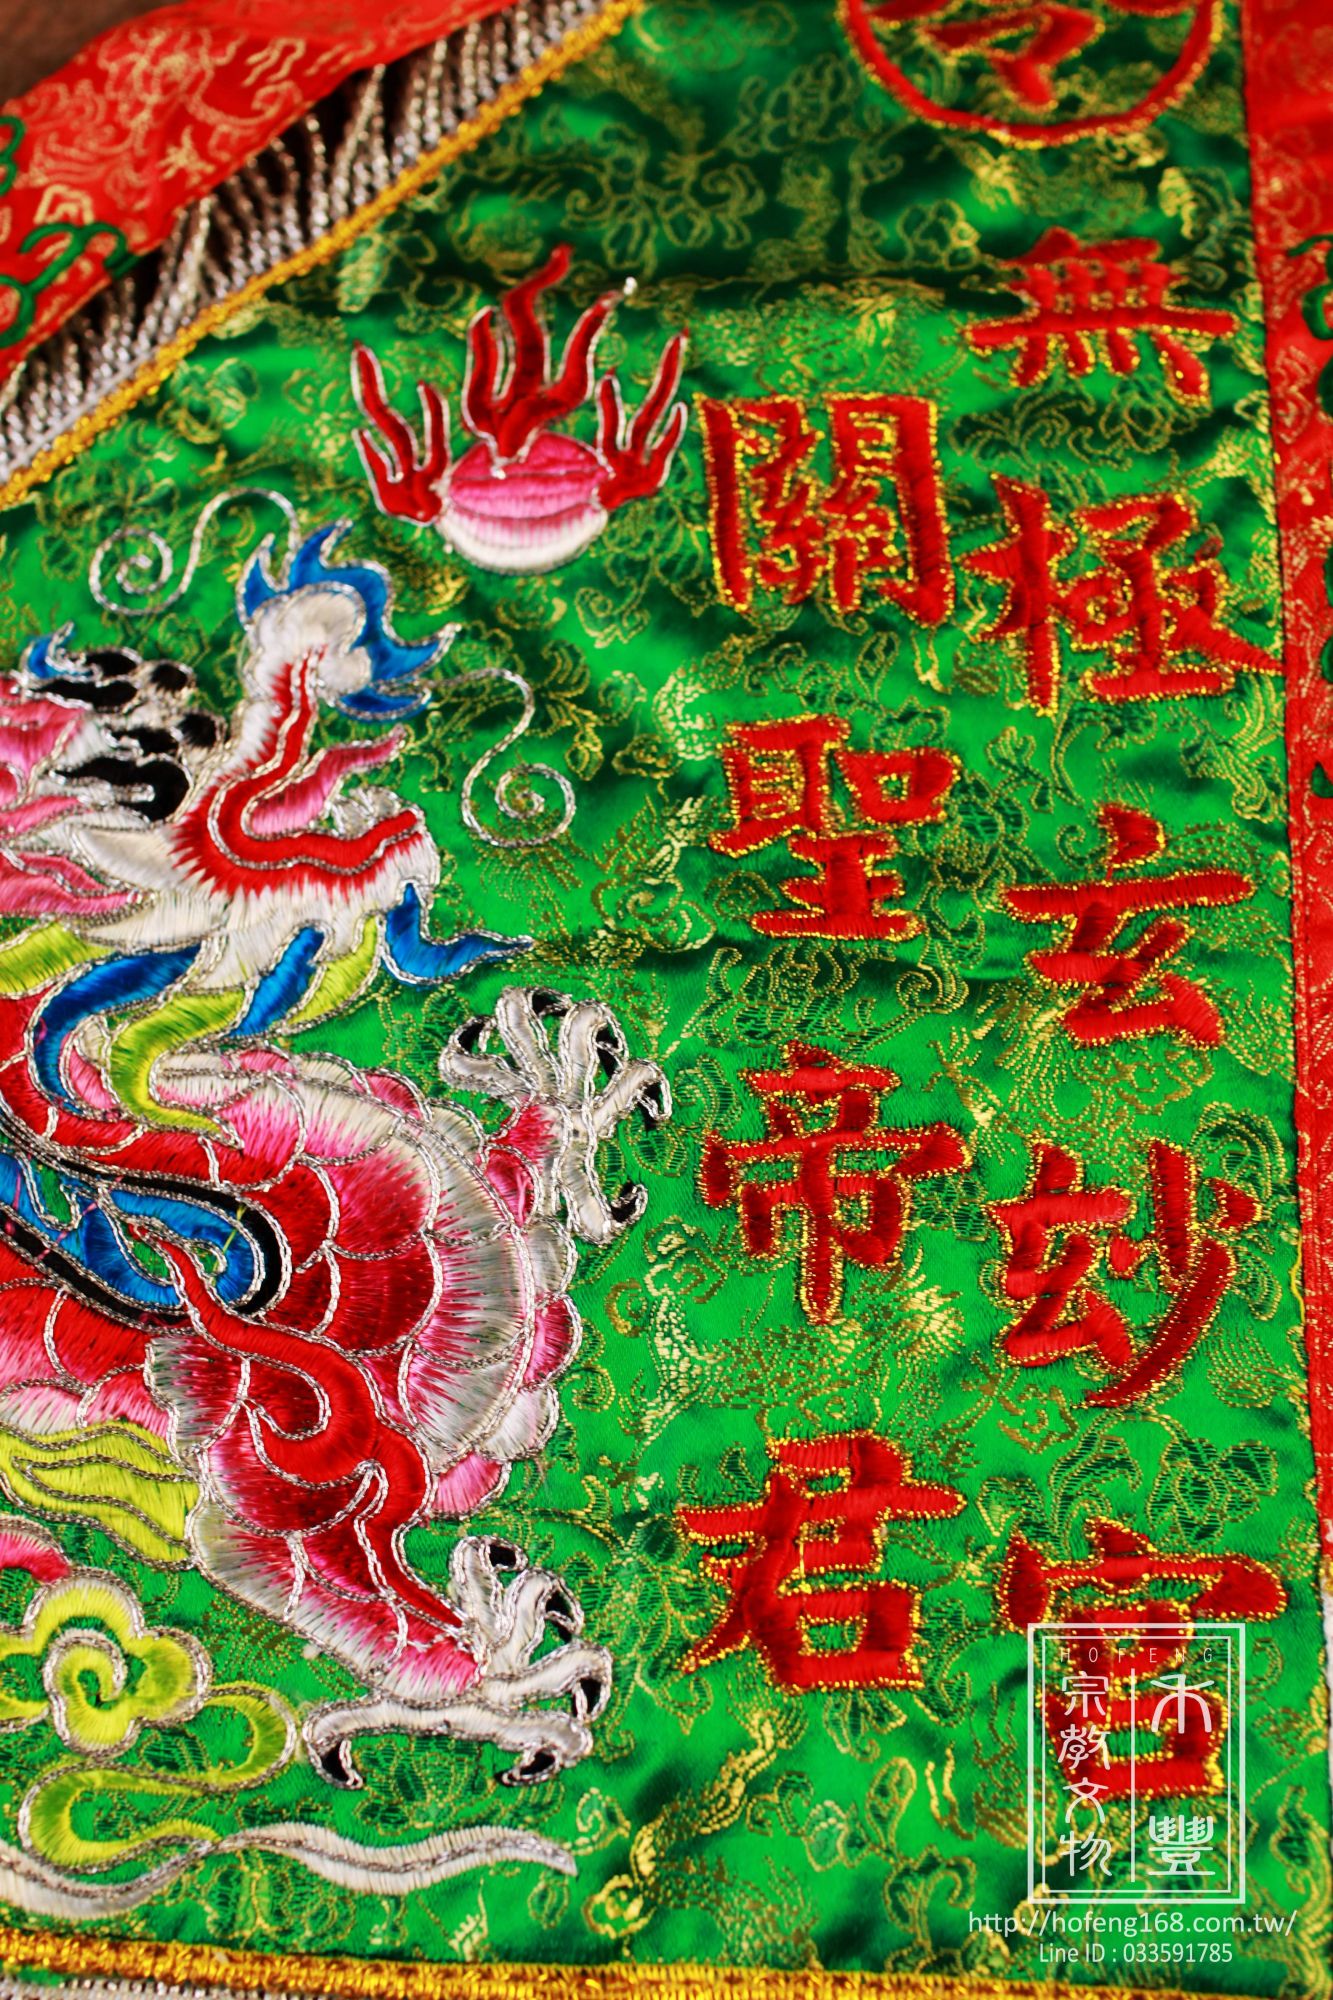 令
無極玄玅宮
關聖帝君
HOFENG
禾豐
宗教文物
http://hofeng168.com.tw/
Line ID : 033591785